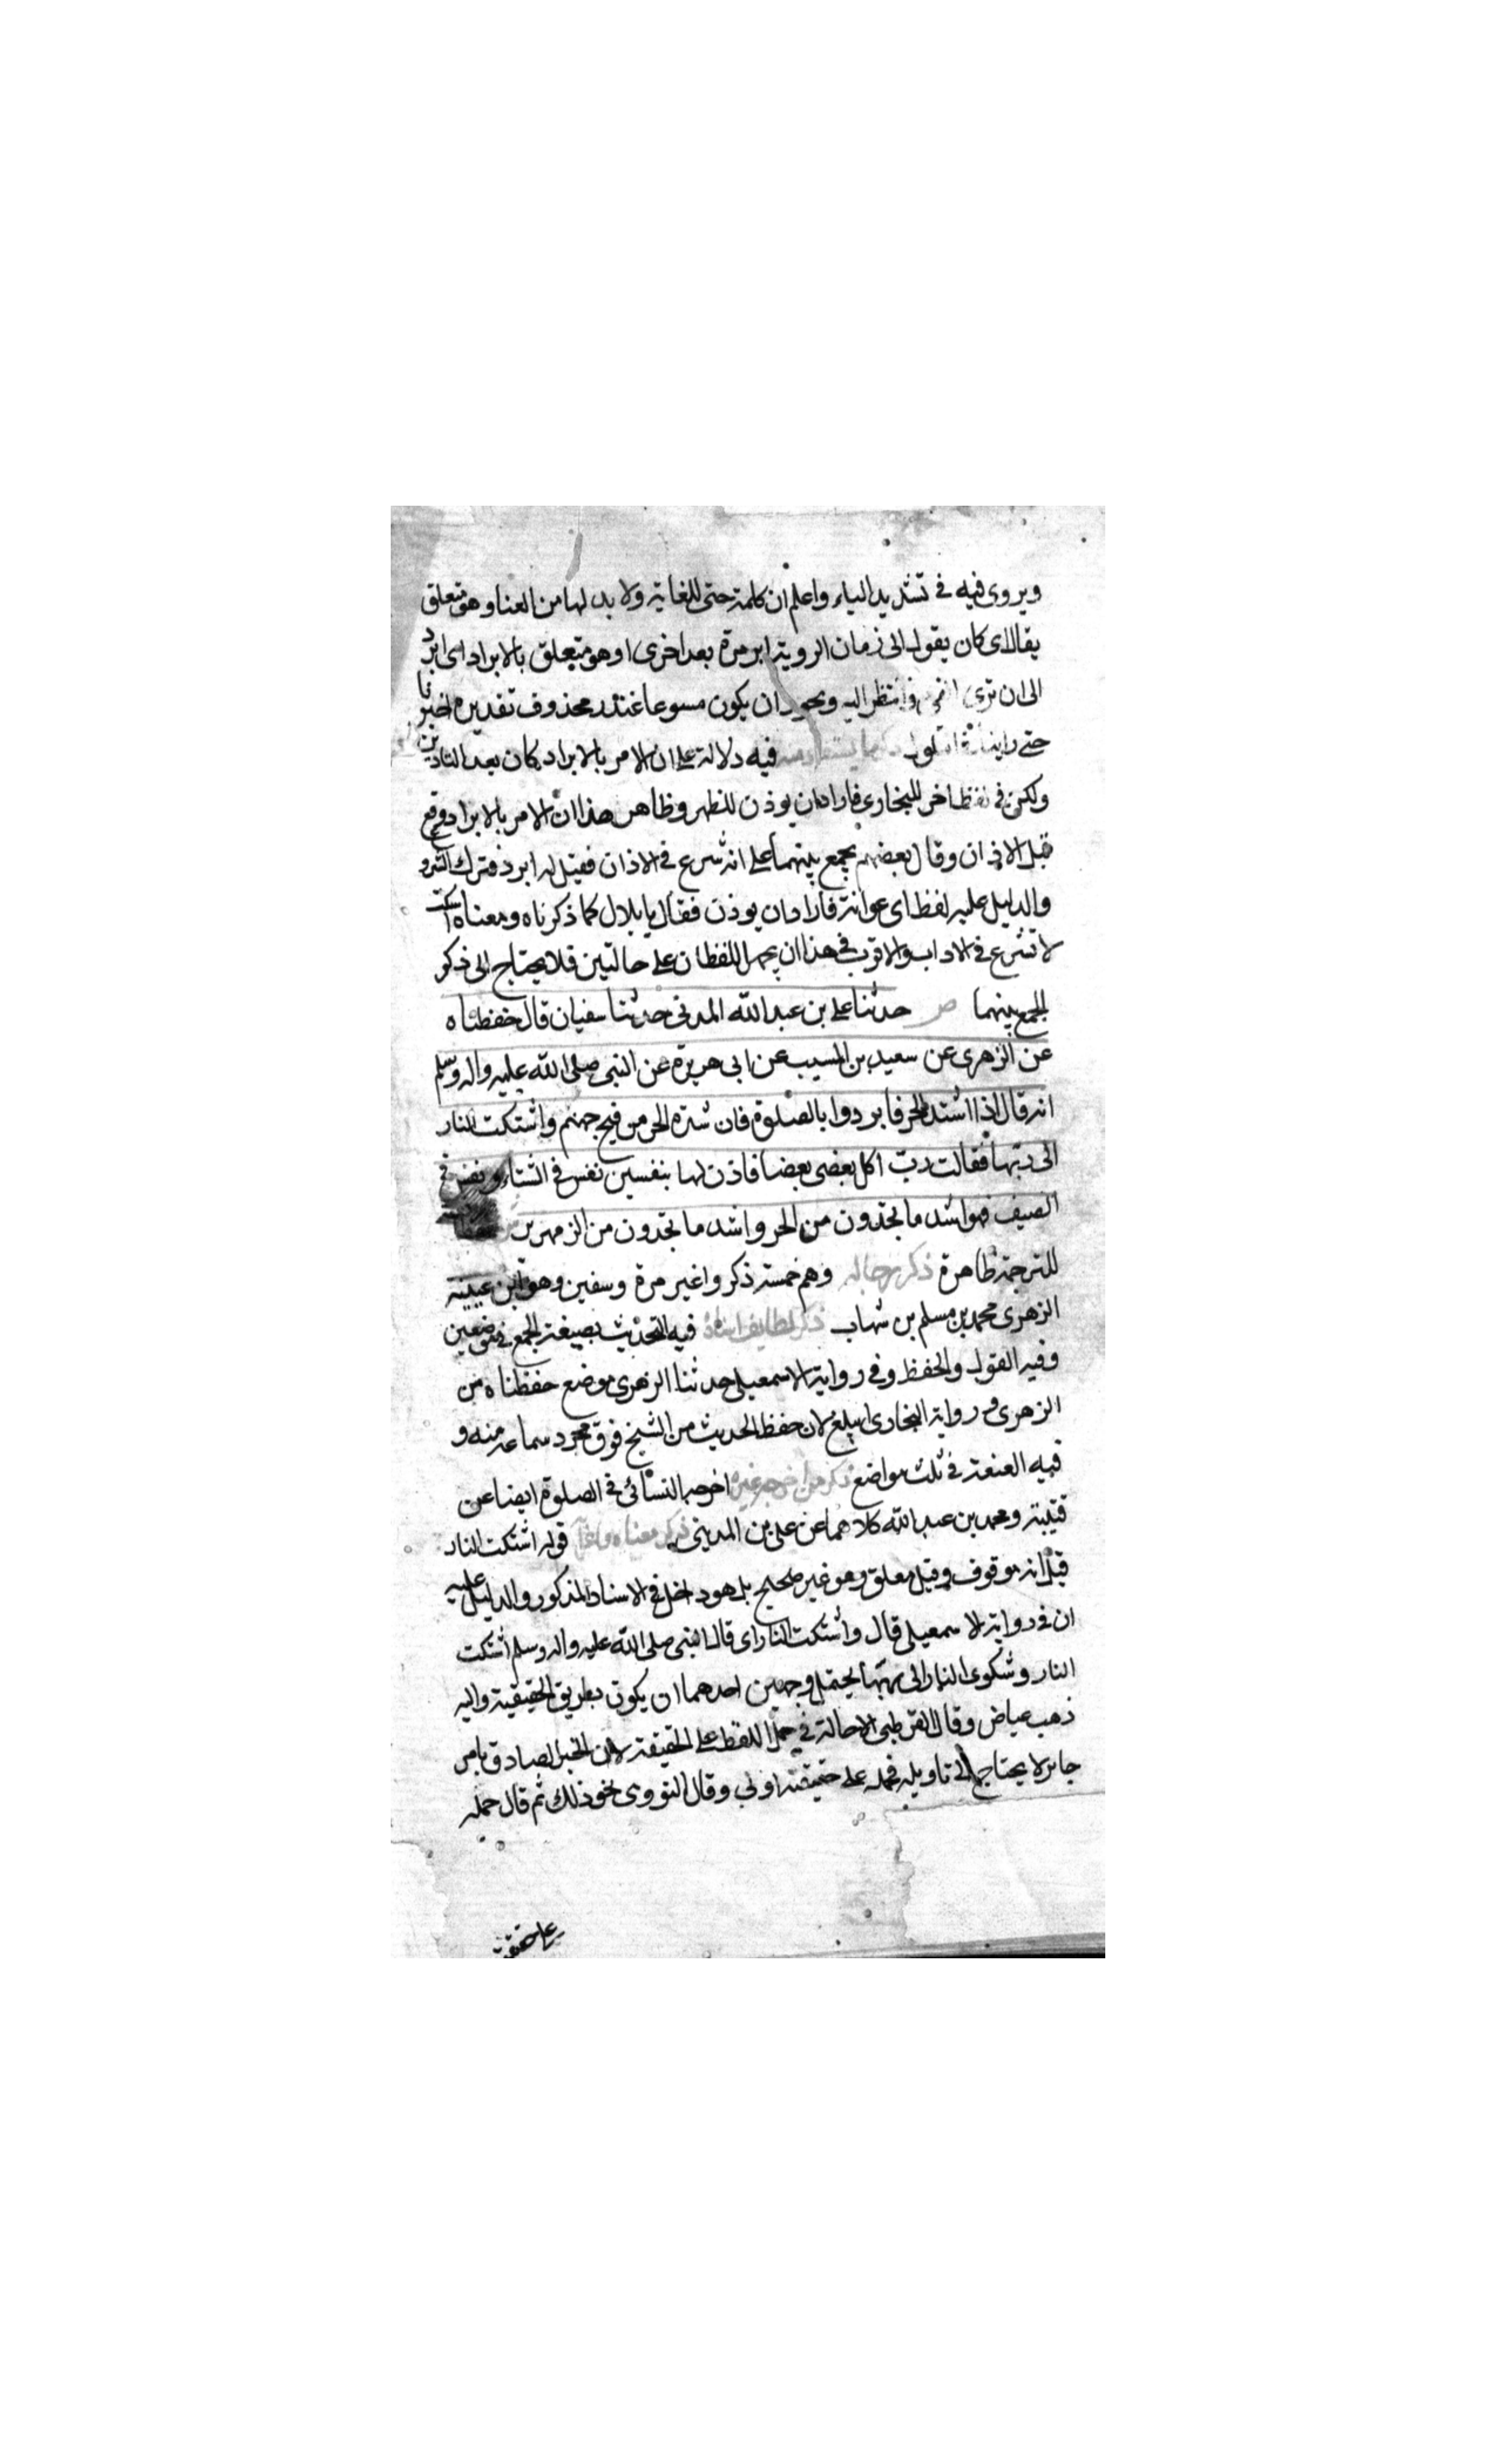 ويروى فيه في تشديد الياء واعلم ان كلمة حتى للغاية ولا بد لها من المغيا وهو متعلق
بقال اى كان يقول الى زمان الروية ابرد مرة بعد اخرى او هو متعلق بالابراد اى ابرد
الى ان ترى وانتظر اليه ويجوز ان يكون مسوعا عند محذوف تقديره اخبرنا
حتى راينا التلول ذكر ما يستفاد منه فيه دلالة على ان الامر بالابراد كان بعد التاذين
ولكن في لفظ اخر للبخارى فاراد ان يوذن للظهر وظاهر هذا ان الامر بالابراد وقع
قبل الاذان وقال بعضهم يجمع بينهما على انه شرع في الاذان فقيل له ابرد فترك
والدليل عليه لفظ ابى عوانة فاراد ان يوذن فقال يا بلال كما ذكرناه ومعناه اسكت
لا تشرع في الاداب والاقرب في هذا ان يحمل اللفظان على حالتين فلا يحتاج الى ذكر
الجمع بينهما ص حدثنا على بن عبد الله المدنى حدثنا سفيان قال حفظناه
عن الزهرى عن سعيد بن المسيب عن ابى هريرة عن النبى صلى الله عليه واله وسلم
انه قال اذا اشتد الحر فابردوا بالصلوة فان شدة الحر من فيح جهنم واشتكت النار
الى ربها فقالت رب اكل بعضى بعضا فاذن لها بنفسين نفس في الشتاء ونفس في
الصيف فهو اشد ما تجدون من الحر واشد ما تجدون من الزمهرير
للترجمة ظاهرة ذكر رجاله وهم خمسة ذكروا غير مرة وسفين وهو ابن عيينة
الزهرى محمد بن مسلم بن شهاب ذكر لطايف اسناده فيه التحديث بصيغة الجمع في موضعين
وفيه القول والحفظ وفي رواية الاسمعيلى حدثنا الزهرى موضع حفظناه من
الزهرى ورواية البخارى ابلغ لان حفظ الحديث من الشيخ فوق مجرد سماعه منه و
فيه العنعنة في ثلث مواضع ذكر من اخرجه غيره اخرجه النسائى في الصلوة ايضا عن
قتيبة ومحمد بن عبد الله كلاهما عن على بن المدينى ذكر معناه قوله اشتكت النار
قيل انه موقوف وقيل معلق وهو غير صحيح بل هو داخل في الاسناد المذكور والدليل عليه
ان في رواية لاسمعيلى قال واشتكت النار اى قال النبى صلى الله عليه واله وسلم اشتكت
النار وشكوى النار الى ربها يحتمل وجهين احدهما ان يكون بطريق الحقيقية واليه
ذهب عياض وقال القرطبى لا احالة في حمل اللفظ على الحقيقة لان المخبر الصادق بامر
جايز لا يحتاج الى تاويله فحمله على حقيقته اولى وقال النووى نحو ذلك ثم قال حمله
على حقيقته